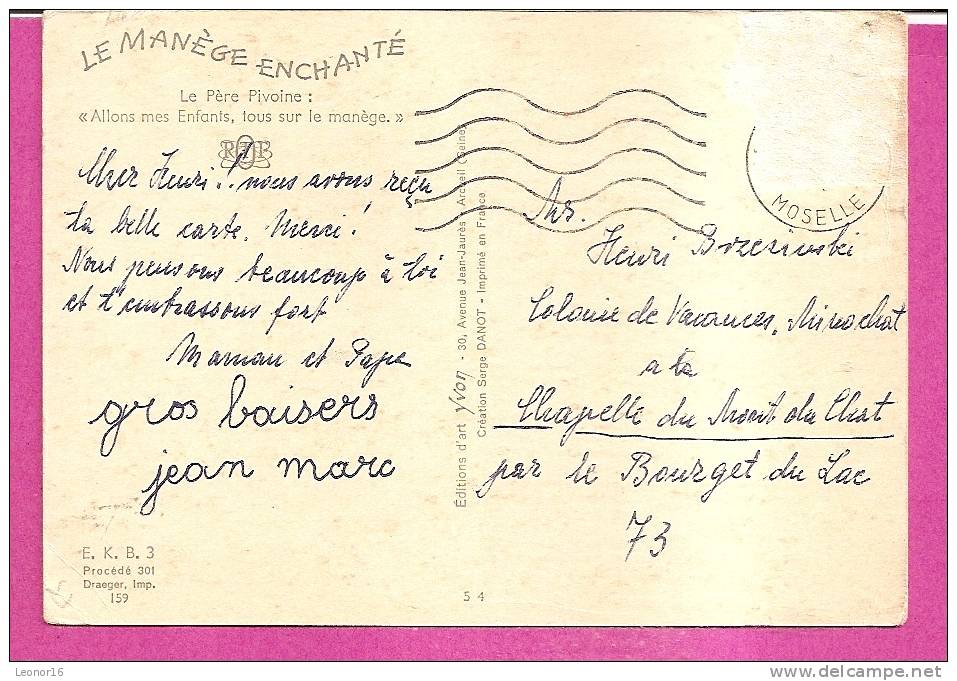 LE MANÈGE ENCHANTÉ
Le Père Pivoine :
« Allons mes Enfants, tous sur le manège. »
Cher Henri ! nous avons reçu
ta belle carte. Merci !
Nous pensons beaucoup à toi
et t'embrassons fort
Maman et Papa
gros baisers
jean marc
E. K. B. 3
Procédé 301
Draeger, Imp.
159
Éditions d'art Yvon - 30, Avenue Jean-Jaurès - Arcueil (Seine)
Création Serge DANOT - Imprimé en France
54
MOSELLE
Mr.
Henri Brzezinski
Colonie de Vacances,
a la
Chapelle du Mont du Chat
par le Bourget du Lac
73
Leonor16
www.delcampe.net